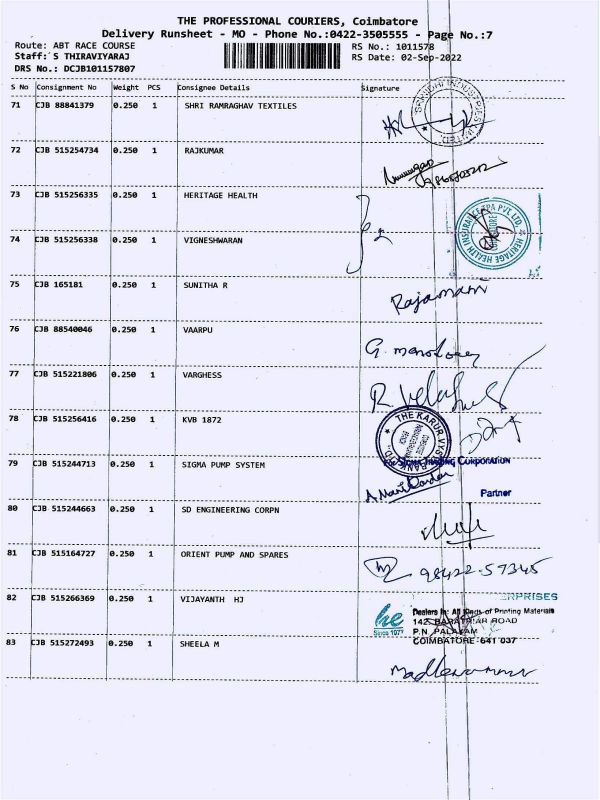 THE PROFESSIONAL COURIERS, Coimbatore
Delivery Runsheet - MO - Phone No.:0422-3505555 - Page No.:7
Route: ABT RACE COURSE
RS No.: 1011578
Staff: S THIRAVIYARAJ
RS Date: 02-Sep-2022
DRS No.: DCJB101157807
S No Consignment No Weight PCS Consignee Details Signature
71 CJB 88841379 0.250 1 SHRI RAMRAGHAV TEXTILES
72 CJB 515254734 0.250 1 RAJKUMAR
73 CJB 515256335 0.250 1 HERITAGE HEALTH
HERITAGE HEALTH
74 CJB 515256338 0.250 1 VIGNESHWARAN
75 CJB 165181 0.250 1 SUNITHA R
Rajamani
76 CJB 88540046 0.250 1 VAARPU
77 CJB 515221806 0.250 1 VARGHESS
78 CJB 515256416 0.250 1 KVB 1872
THE KARUR VYSYA BANK LTD.
79 CJB 515244713 0.250 1 SIGMA PUMP SYSTEM
Partner
80 CJB 515244663 0.250 1 SD ENGINEERING CORPN
81 CJB 515164727 0.250 1 ORIENT PUMP AND SPARES
98422-57345
82 CJB 515266369 0.250 1 VIJAYANTH HJ
he
Since 1977
RPRISES
Dealers in: All Kinds of Printing Materials
142, BARATHIAR ROAD
P.N. PALAYAM
COIMBATORE-641 037
83 CJB 515272493 0.250 1 SHEELA M